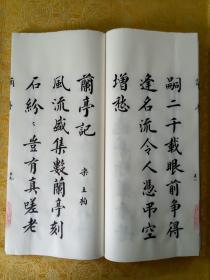 嗣二千載眼前爭得
逢名流令人憑吊空
增愁
蘭亭記
宋王柏
風流盛集數蘭亭刻
石紛〻豈有真嗟老